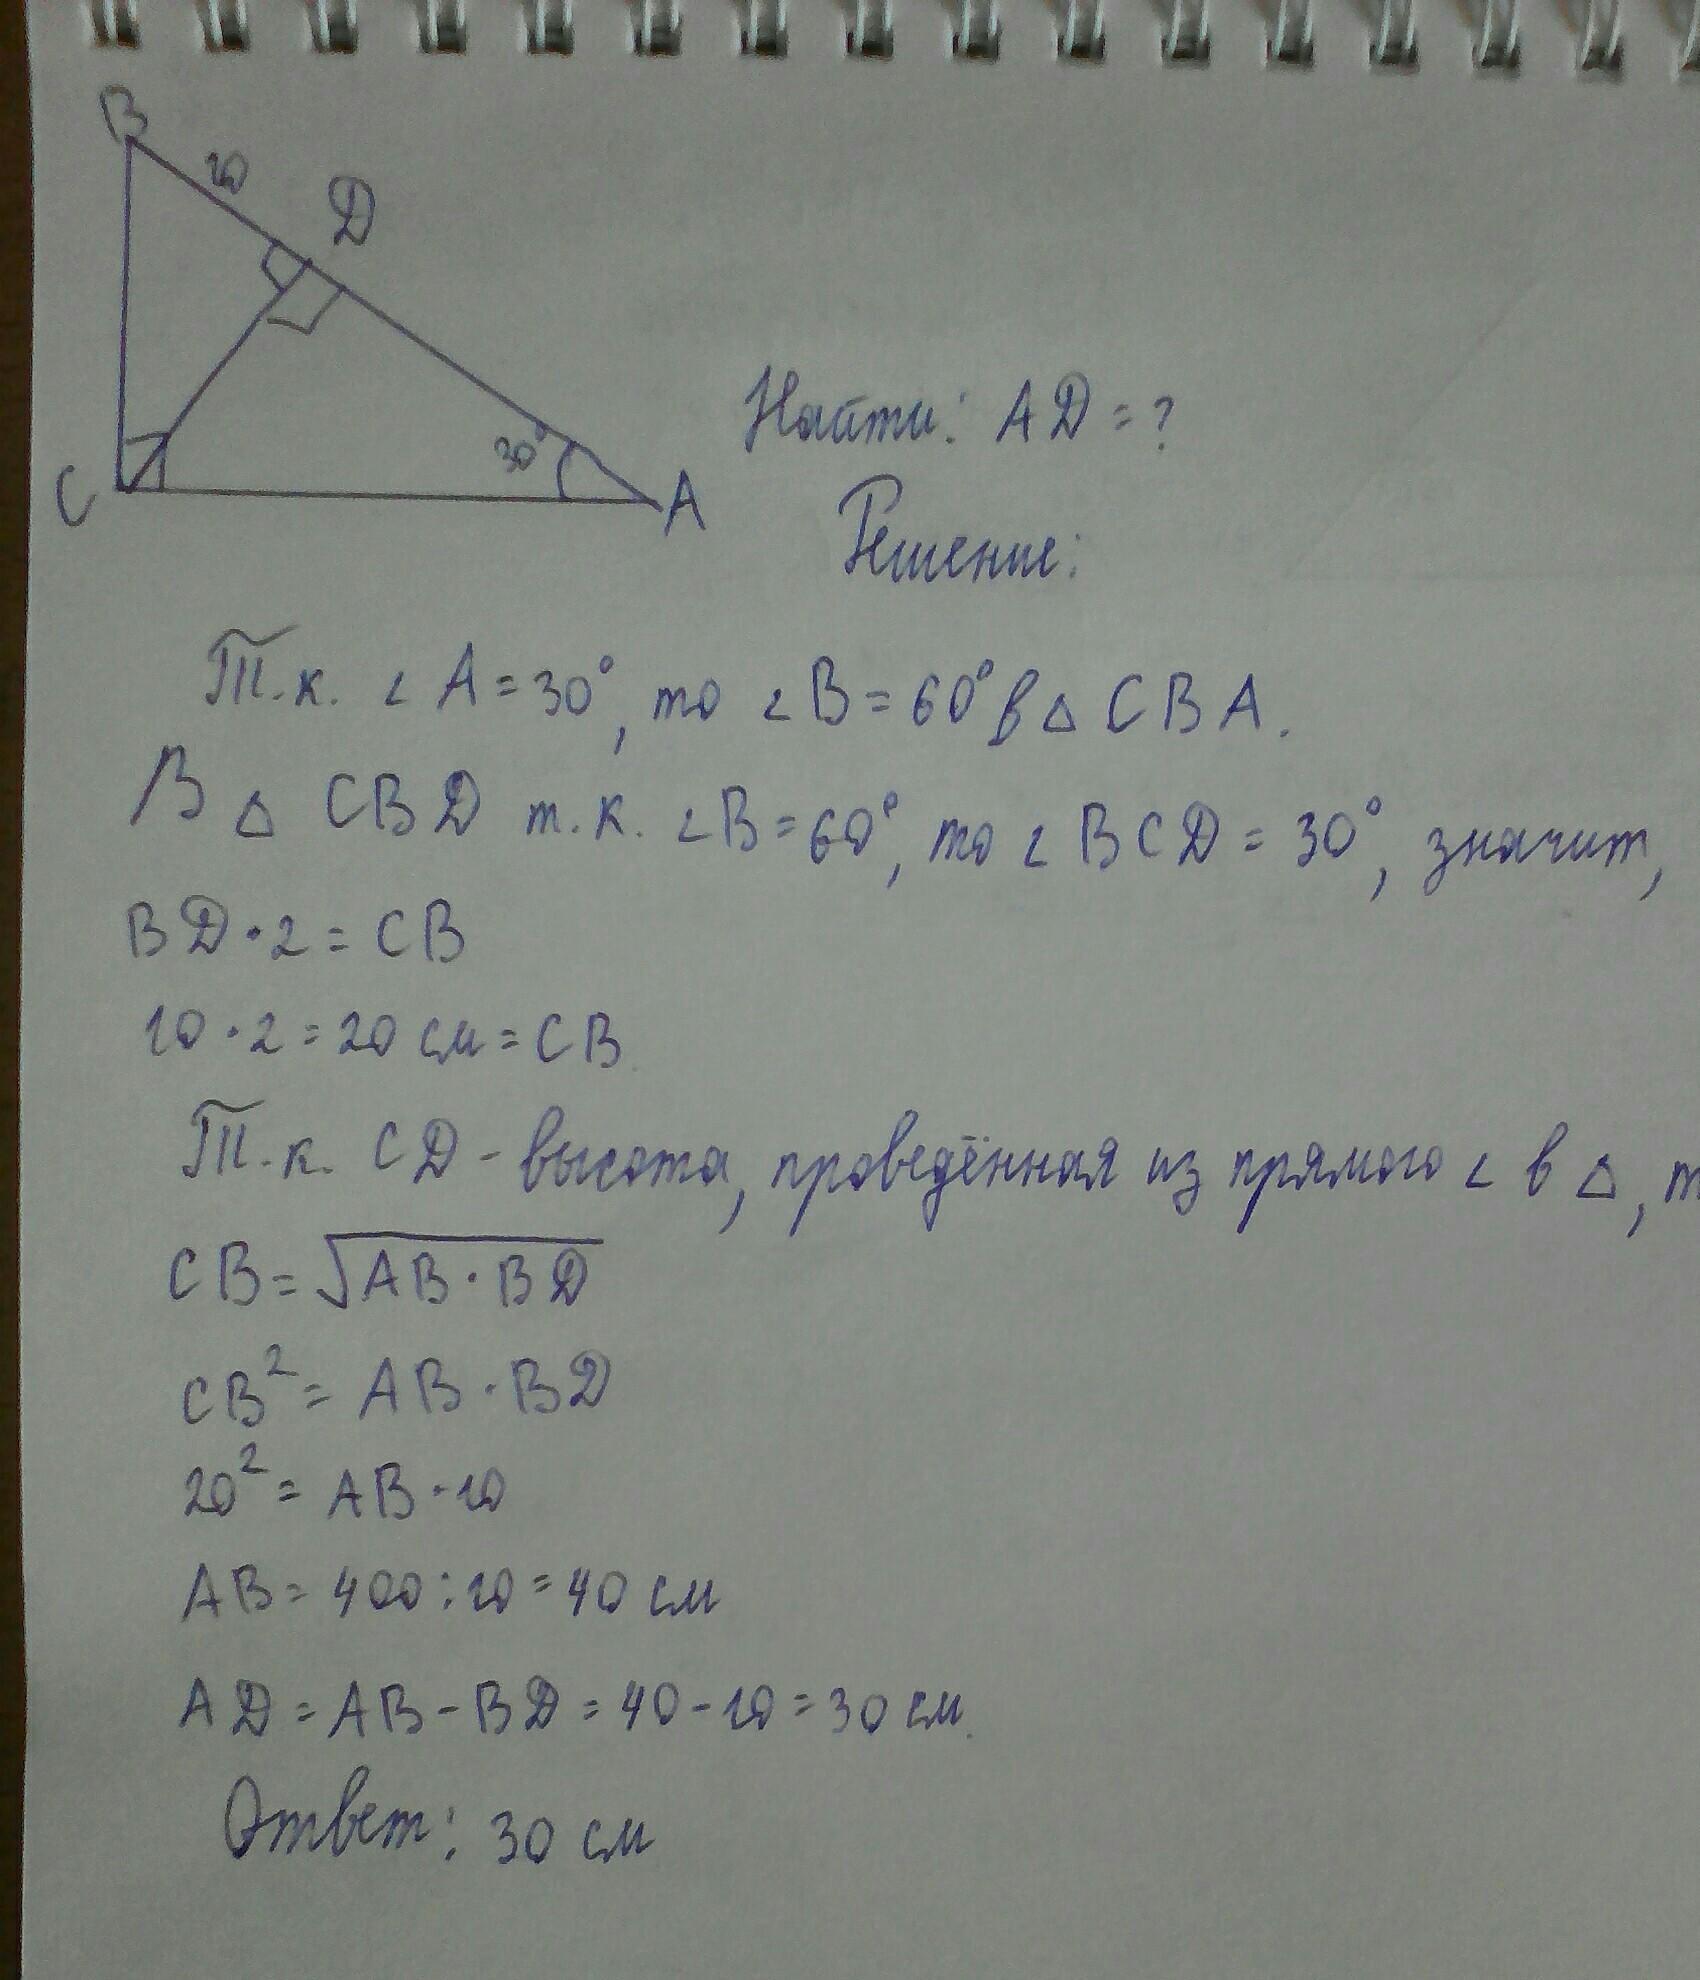 B
10
D
30°
C
A
Найти: AD = ?
Решение:
Т.к. ∠A = 30°, то ∠B = 60° в △ CBA.
В △ CBD т.к. ∠B = 60°, то ∠BCD = 30°, значит,
BD · 2 = CB
10 · 2 = 20 см = CB
Т.к. CD - высота, проведённая из прямого ∠ в △, т
CB = √AB · BD
CB² = AB · BD
20² = AB · 10
AB = 400 : 10 = 40 см
AD = AB - BD = 40 - 10 = 30 см.
Ответ: 30 см